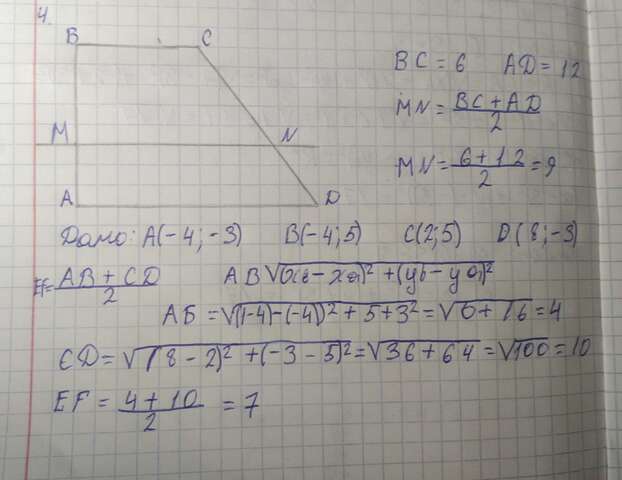 4.
B C
BC = 6 AD = 12
MN = BC + AD / 2
M N
MN = 6 + 12 / 2 = 9
A D
Дано: A(-4; -3) B(-4; 5) C(2; 5) D(8; -3)
EF = AB + CD / 2 AB √(xв - xa)² + (yв - ya)²
AБ = √((-4) - (-4))² + 5 + 3² = √0 + 16 = 4
CD = √(8 - 2)² + (-3 - 5)² = √36 + 64 = √100 = 10
EF = 4 + 10 / 2 = 7